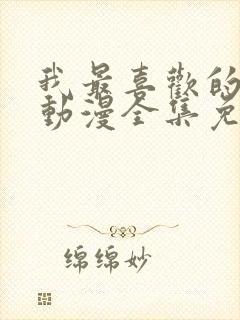 我最喜歡的
動漫全集免
绵绵妙